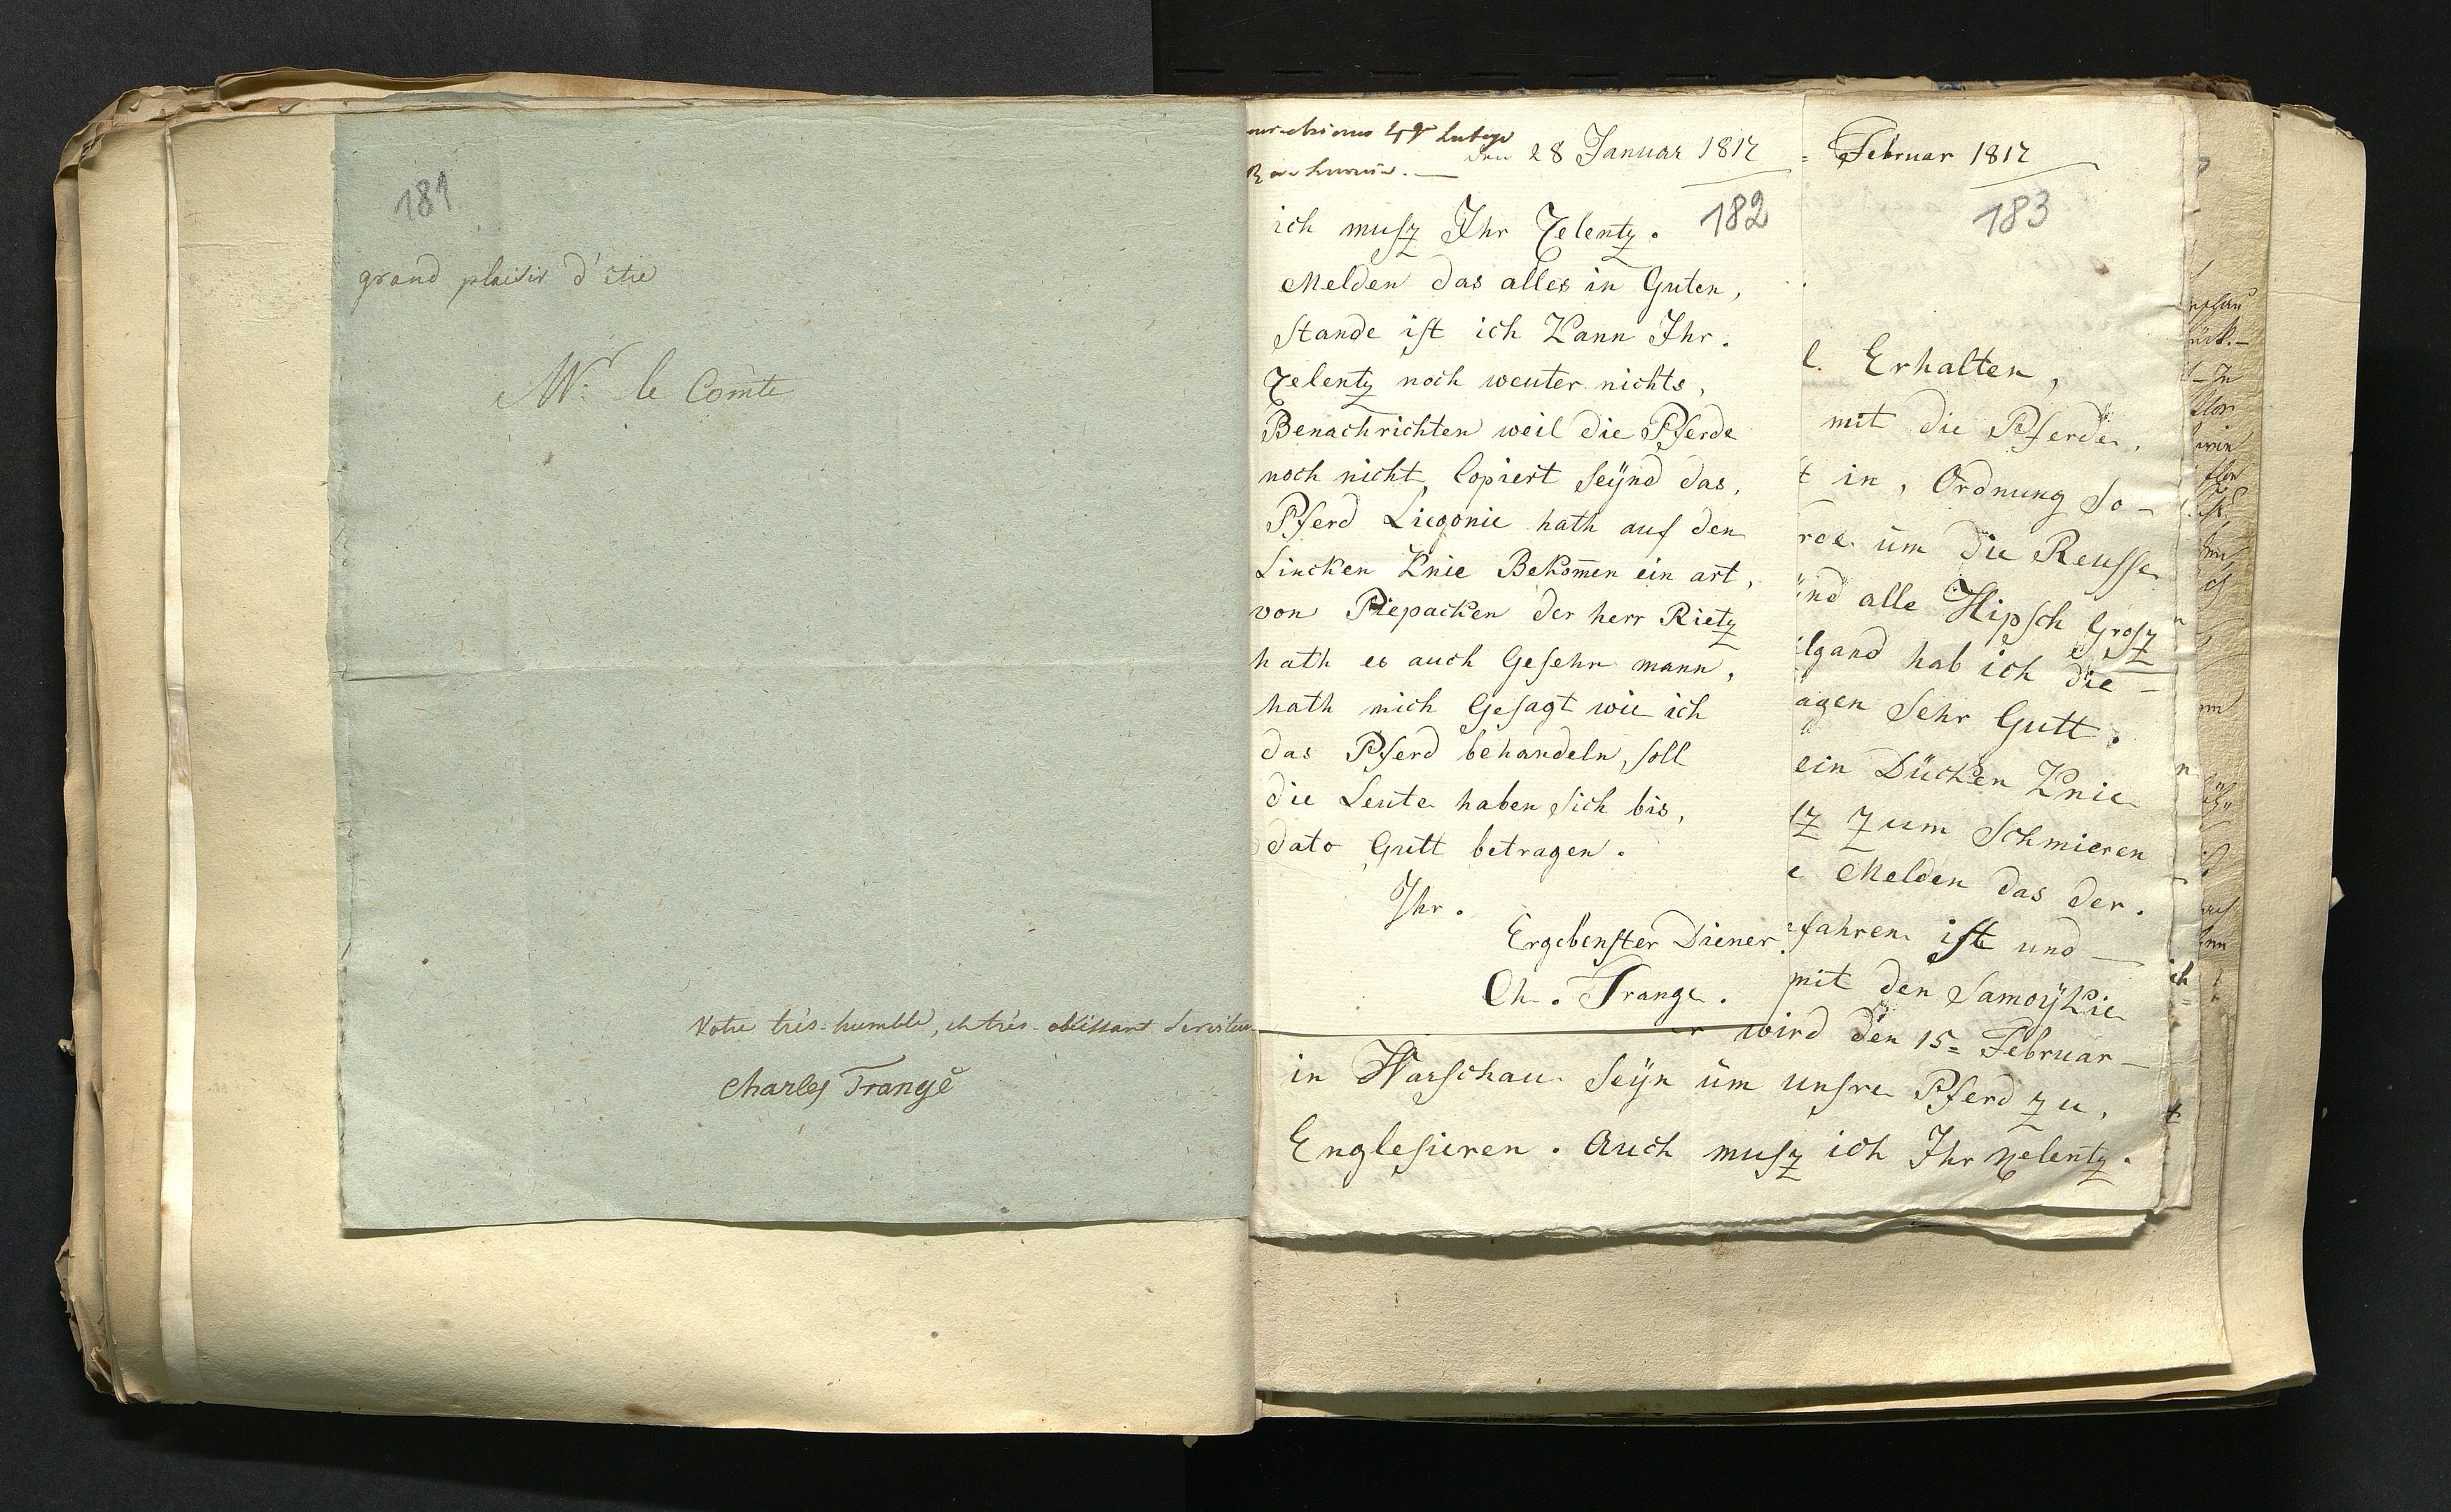 181
grand plaisir d'être
Mr. le Comte
Votre très-humble, et très-obéissant Serviteur
Charles Trangé
28 Januar 1817
182
ich musz Ihr Zelentz.
Melden das alles in Guten,
stande ist ich Kann Ihr.
Zelentz noch weuter nichts,
Benachrichten weil die Pferde
noch nicht, Copiert seÿnd das,
Pferd Liegonie hath auf den
Lincken Knie Bekom̅en ein art,
von Piepacken der herr Rietz
hath es auch Gesehn mann,
hath mich Gesagt wie ich
das Pferd behandeln, soll
die Leute haben sich bis,
dato Gutt betragen.
Ihr.
Ergebenster Diener
Ch. Trange.
Februar 1817
183
l. Erhalten,
mit die Pferde,
t in, Ordnung So-
rde um die Reusse
ünd alle Hipsch Grosz
ilgand hab ich die-
agen Sehr Gutt.
ein Dücken Knie
sz Zum Schmieren
e Melden das der.
efahren ist und
mit den Samoÿkie
wird den 15= Februar-
in Warschau Seÿn üm unsre Pferd zu,
Englesieren. Auch musz ich Ihr Zelentz.